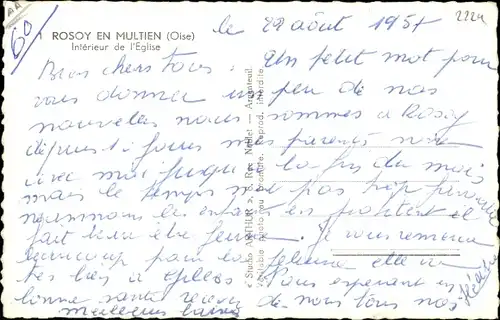 60
ROSOY EN MULTIEN (Oise)
Intérieur de l'Eglise
le 29 août 1957
2224
Bien chers tous. Un petit mot pour
vous donner un peu de nos
nouvelles nous sommes à Rosoy
depuis jours mes parents sont
avec moi jusqu'à la fin du mois
mais le temps n'est pas trop favorable
néanmoins les enfants en profitent il
fait beau être Je vous remercie
beaucoup pour la elle va
très bien à Vous espérant en
bonne santé recevez de nous tous nos
meilleurs baisers
Hélène
« Studio ARTHUR », Rue Nollet — Argenteuil
Véritable photo au bromure. Reprod. interdite